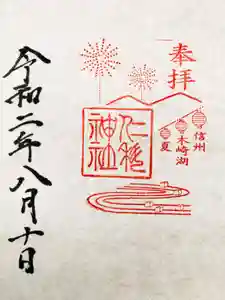 奉拝
信州
木崎湖
夏
仁科
神社
令和二年八月十日